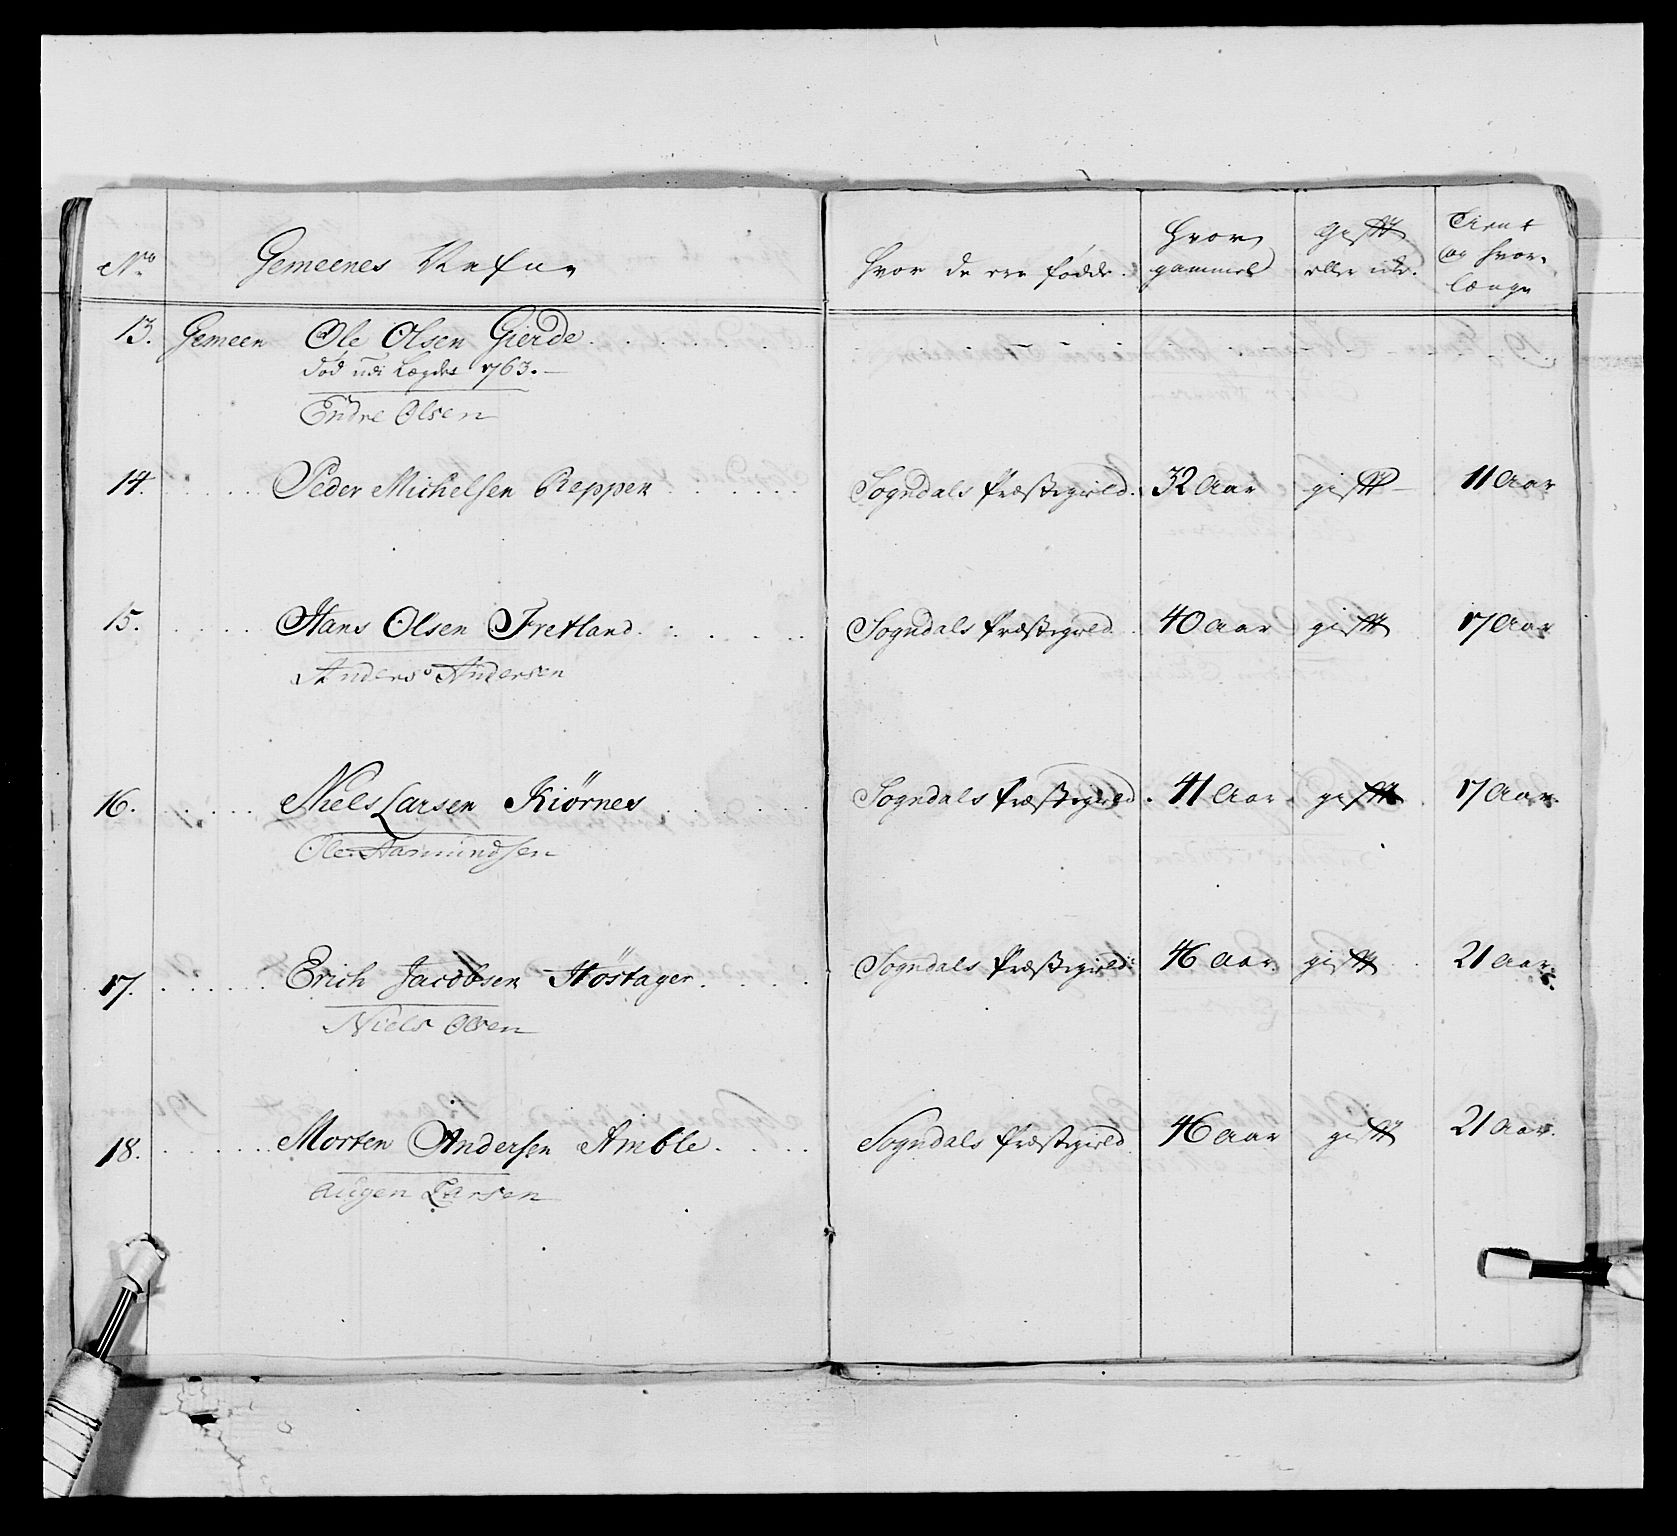 No
Gemeenes Nafne
hvor de ere födde.
hvor
gammel
gift
eller ikke.
Tient
og hvor
længe
13. Gemeen Ole Olsen Gierde
død udi Lægdet 1763.
Endre Olsen
14. Peder Michelsen Reppen Sogndals Præstegield. 32 Aar gift 11 Aar
15. Hans Olsen Fretland Sogndals Præstegield 40 Aar gift 17 Aar
Anders Andersen
16. Niels Larsen Kiörnes Sogndals Præstegield. 41 Aar gift 17 Aar.
Ole Aamundsen
17. Erich Jacobsen Höstager. Sogndals Præstegield: 46 Aar gift 21 Aar.
Niels Olsen
18. Morten Andersen Amble. Sogndals Præstegield 46 Aar gift 21 Aar.
Augen Larsen